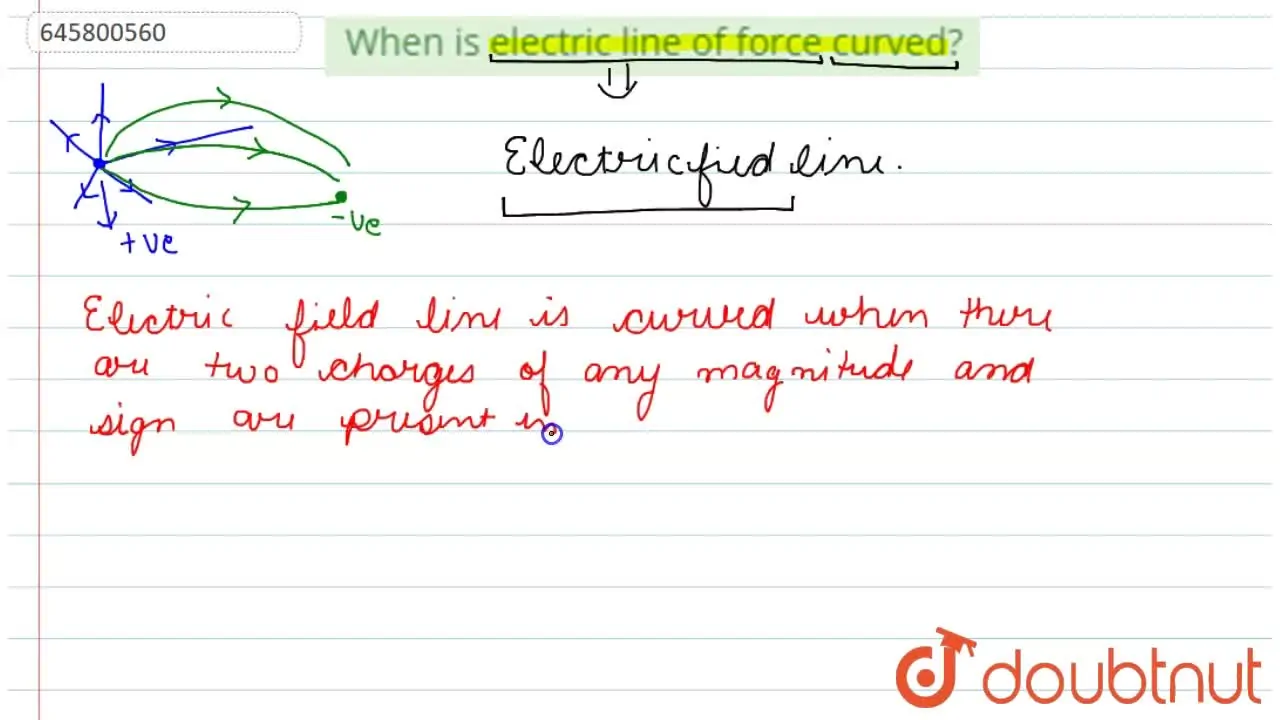 645800560
When is electric line of force curved?
Electricfied line.
-ve
+ve
Electric field line is curved when there
are two charges of any magnitude and
sign are present in
doubtnut